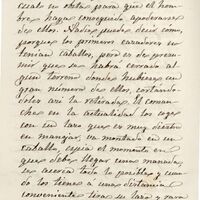 cisal es obsta para que el hom-
bre haya conseguido apoderarse
de ellos. Nadie puede decir como,
porque los primeros cazadores no
tenian caballos, pero es de presu-
mir que se habrá cercado al-
gun terreno donde hubiera un
gran número de ellos, cortando-
doles asi la retirada. El coman-
che en la actualidad los coge
con su lazo que es muy diestro
en manejar, va montado en un
caballo, espia el momento en
que debe llegar una manada,
se acerca todo lo posible y cuan-
do los tiene á una distancia
conveniente tira su lazo y rara